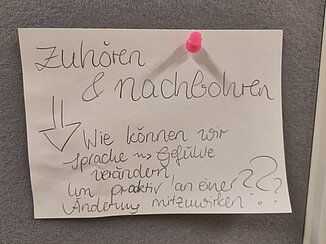 Zuhören
& nachbohren
Wie können wir
Sprache ⇝ Gefühle
verändern,
um proaktiv an einer ???
Änderung mitzuwirken